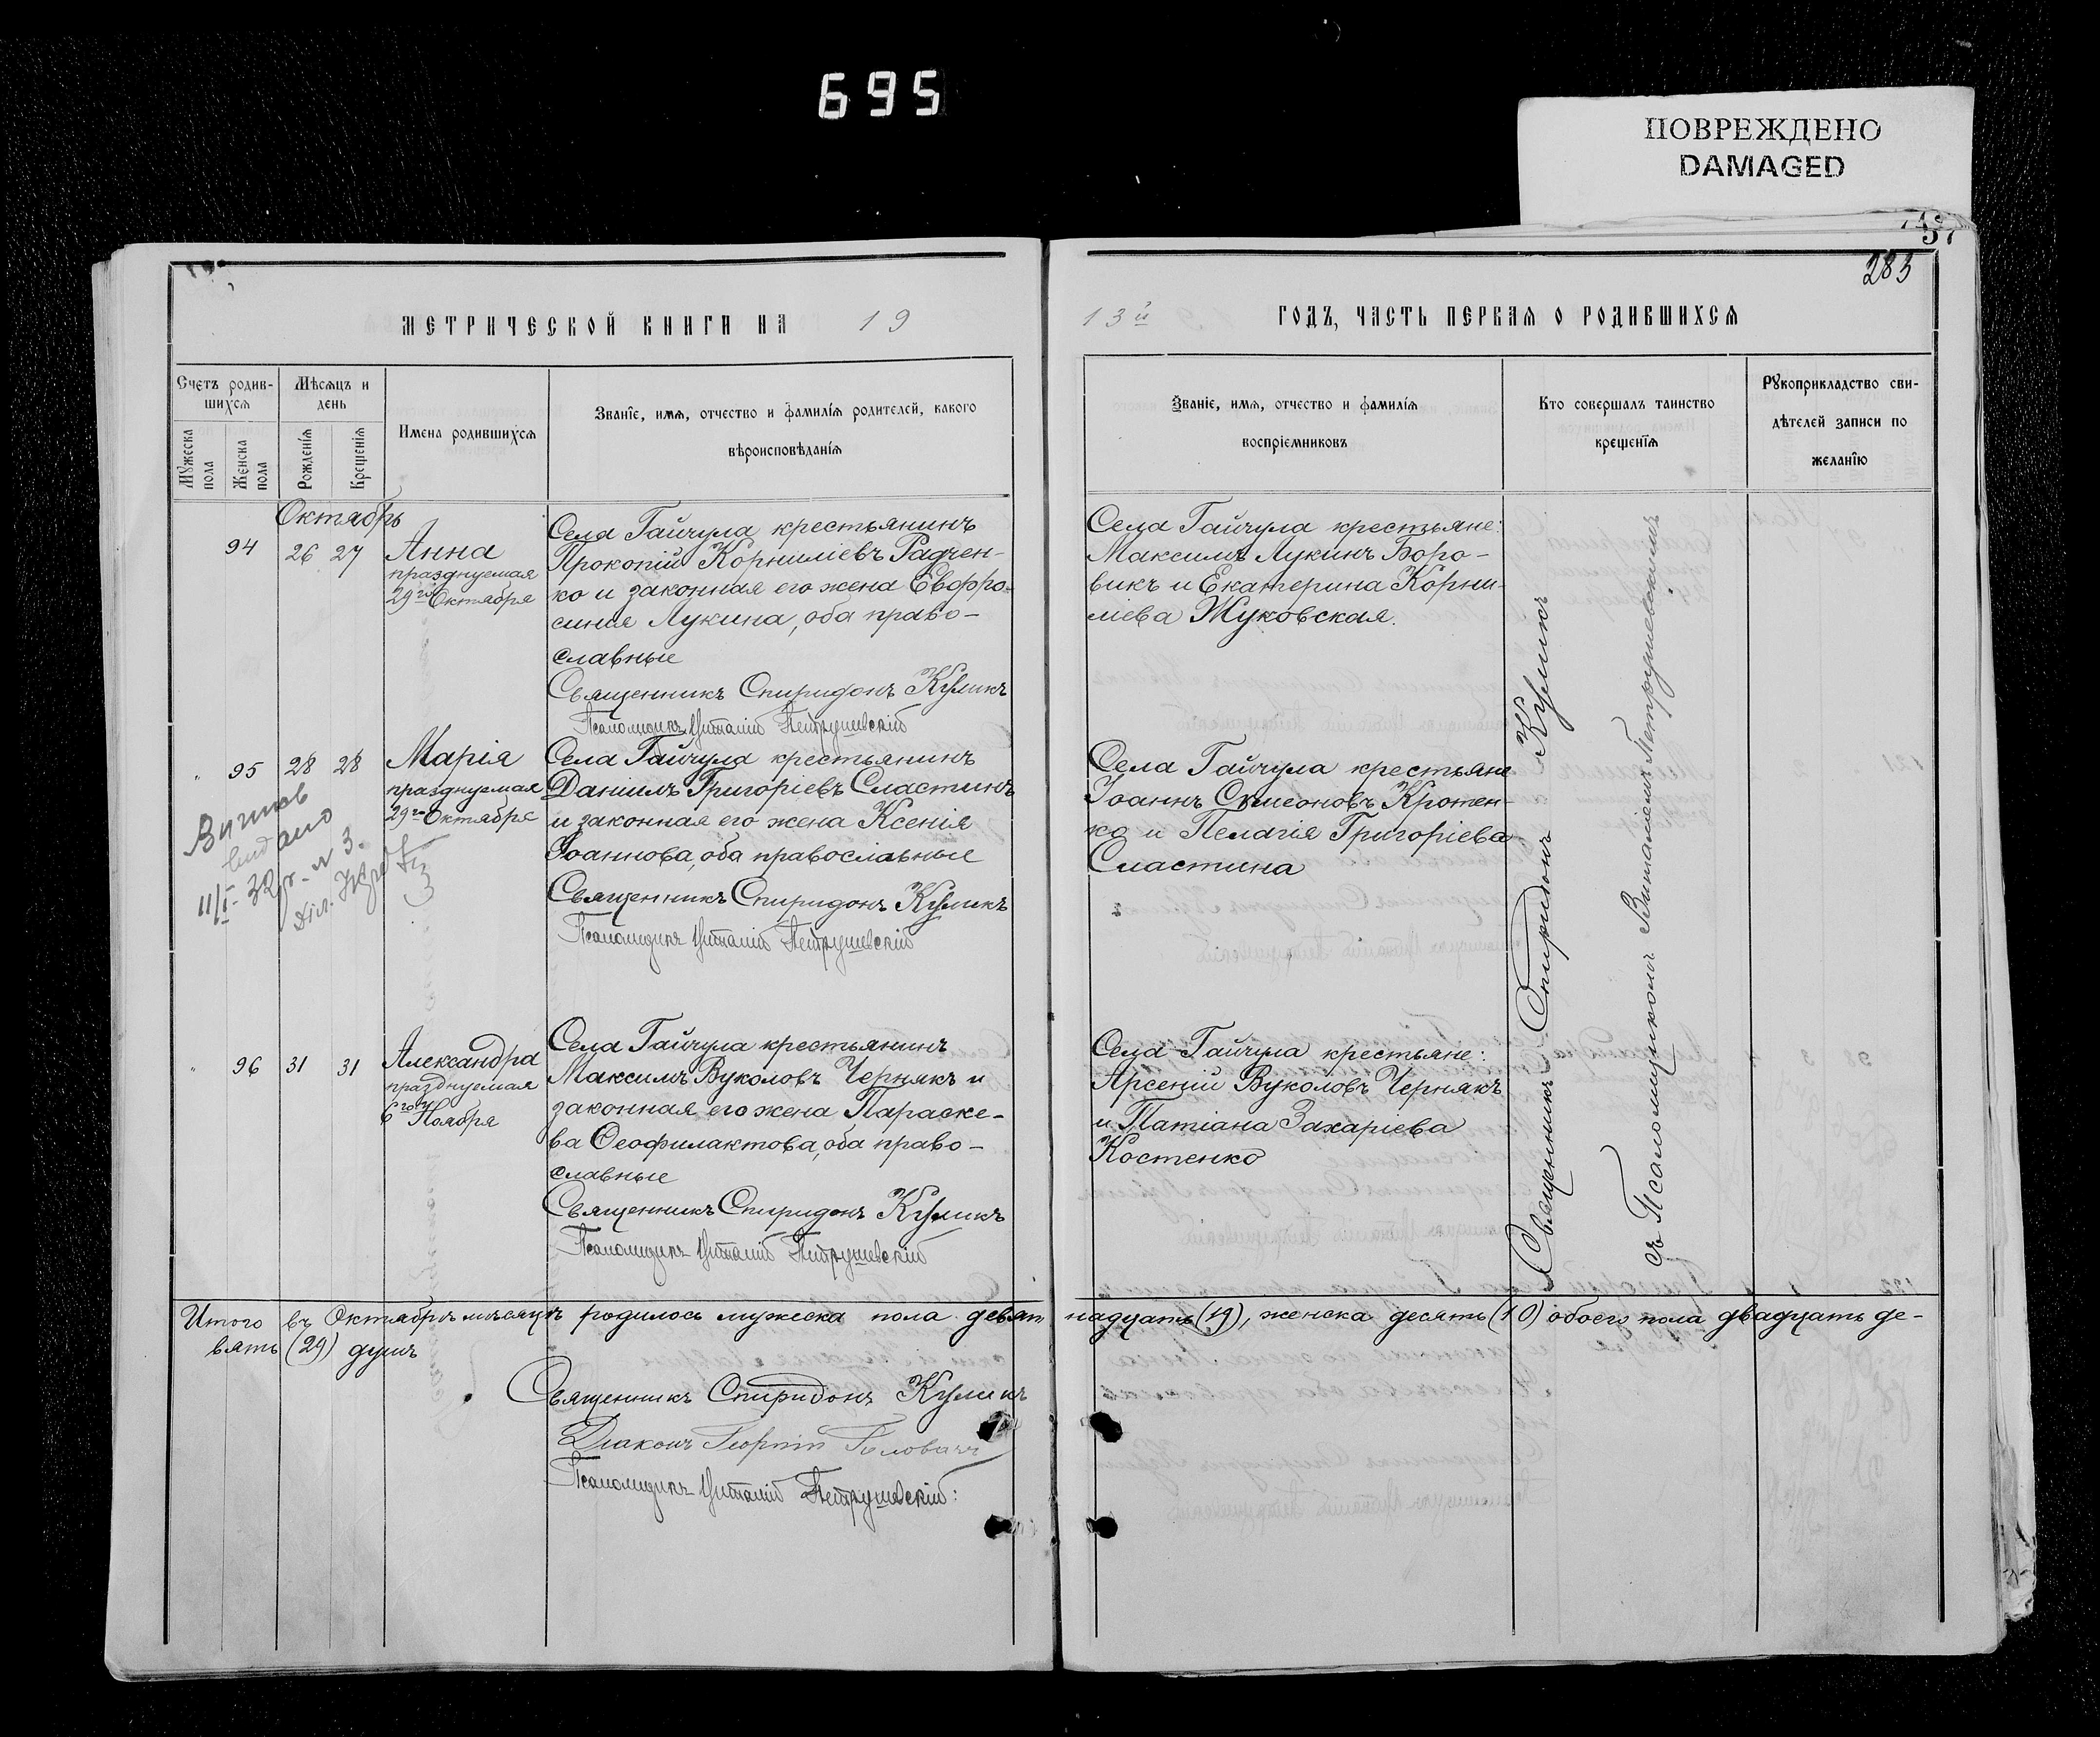 695
ПОВРЕЖДЕНО
DAMAGED
37
283
МЕТРИЧЕСКОЙ КНИГИ НА 19
13й ГОДЪ, ЧАСТЬ ПЕРВАЯ О РОДИВШИХСЯ
Счетъ родив-
шихся
Мужеска
пола
Женска
пола
Мѣсяцъ и
день
Рожденія
Крещенія
Имена родившихся
Званіе, имя, отчество и фамилія родителей, какого
вѣроисповѣданія
Званіе, имя, отчество и фамилія
воспріемниковъ
Кто совершалъ таинство
крещенія
Рукоприкладство сви-
дѣтелей записи по
желанію
Октябрь
94 26 27
Анна
празднуемая
29го Октября
Села Гайчула крестьянинъ
Прокопій Корниліевъ Радчен-
ко и законная его жена Евфро-
синія Лукина, оба право-
славные
Священникъ Спиридонъ Куликъ
Псаломщикъ Виталій Петрушевскій
Села Гайчула крестьяне:
Максимъ Лукинъ Боро-
викъ и Екатерина Корни-
ліева Жуковская.
" 95 28 28
Марія
празднуемая
29го Октября
Витяг
видано
11/I-32 р. N 3.
Села Гайчула крестьянинъ
Даніилъ Григоріевъ Сластинъ
и законная его жена Ксенія
Іоаннова, оба православные
Священникъ Спиридонъ Куликъ
Псаломщикъ Виталій Петрушевскій
Села Гайчула крестьяне
Іоаннъ Симеоновъ Кротен-
ко и Пелагія Григоріева
Сластина
" 96 31 31
Александра
празднуемая
6го Ноября
Села Гайчула крестьянинъ
Максимъ Вуколовъ Чернякъ и
законная его жена Параске-
ва Ѳеофилактова, оба право-
славные
Священникъ Спиридонъ Куликъ
Псаломщикъ Виталій Петрушевскій
Села Гайчула крестьяне:
Арсеній Вуколовъ Чернякъ
и Татіана Захаріева
Костенко
Священникъ Спиридонъ Куликъ
съ Псаломщикомъ Виталіемъ Петрушевскимъ
Итого въ Октябрѣ мѣсяцѣ родилось мужеска пола девят надцать (19), женска десять (10) обоего пола двадцать де-
вять (29) душъ
Священникъ Спиридонъ Куликъ
Діаконъ Георгій Головачъ
Псаломщикъ Виталій Петрушевскій: